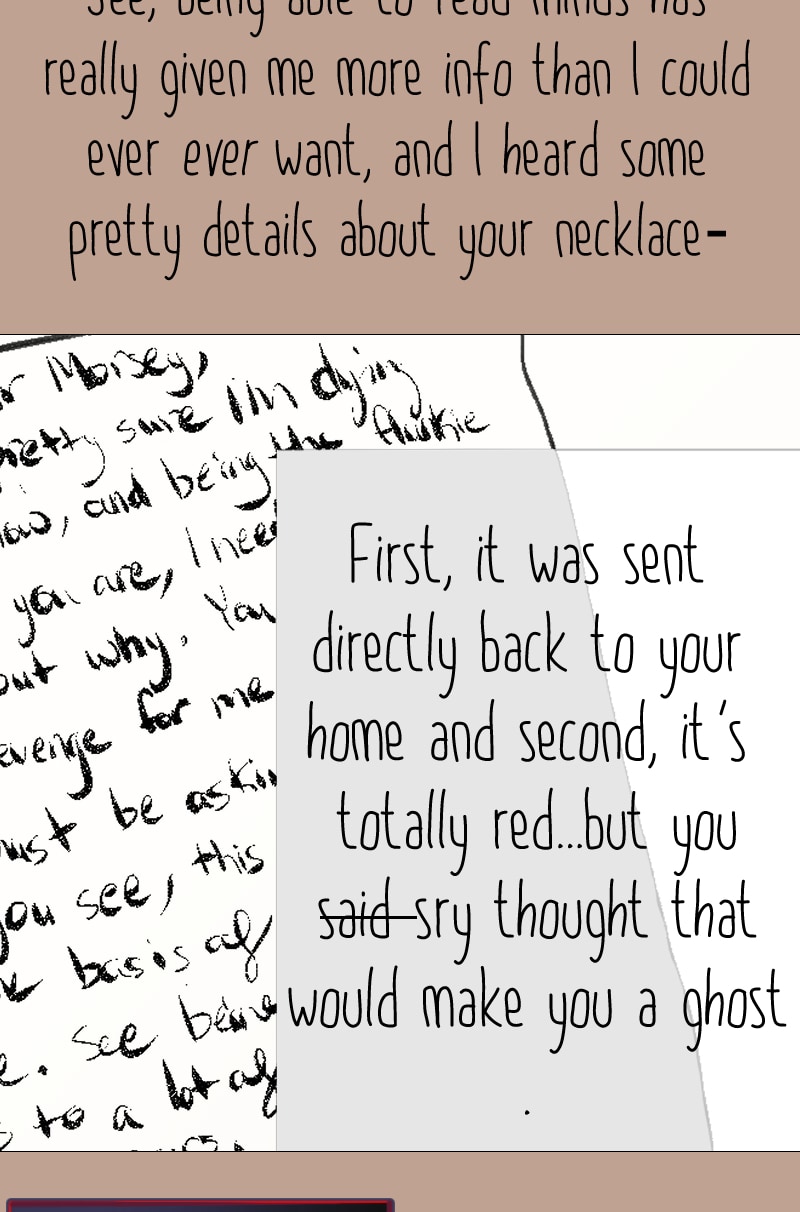 See, being able to read minds has
really given me more info than I could
ever ever want, and I heard some
pretty details about your necklace-
Morsey,
pretty sure I'm dying
and being the
you are, I need
out why. You
revenge for me
must be askin
you see, this
basis of
. see
to a lot of
First, it was sent
directly back to your
home and second, it's
totally red...but you
said sry thought that
would make you a ghost
.